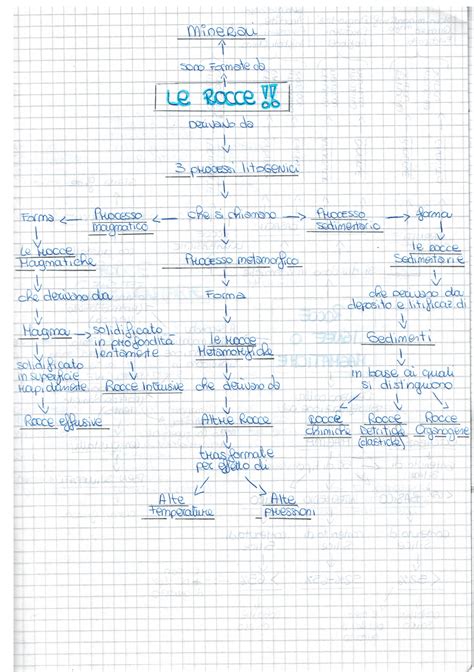 Minerali
sono Formate da
Le Rocce!!
Derivano da
3 processi litogenici
che si chiamano
Processo
magmatico
Forma
Le Rocce
Magmatiche
che derivano da
Magma
solidificato
in superficie
rapidamente
Rocce effusive
solidificato
in profondità
lentamente
Rocce Intrusive
Processo metamorfico
Forma
le Rocce
Metamorfiche
che derivano da
Altre Rocce
trasformate
per effetto di
Alte
Temperature
Alte
pressioni
Processo
sedimentario
forma
le Rocce
Sedimentarie
che derivano da
deposito e litificaz. di
Sedimenti
in base ai quali
si distinguono
Rocce
chimiche
Rocce
Detritiche
(clastiche)
Rocce
Organogene